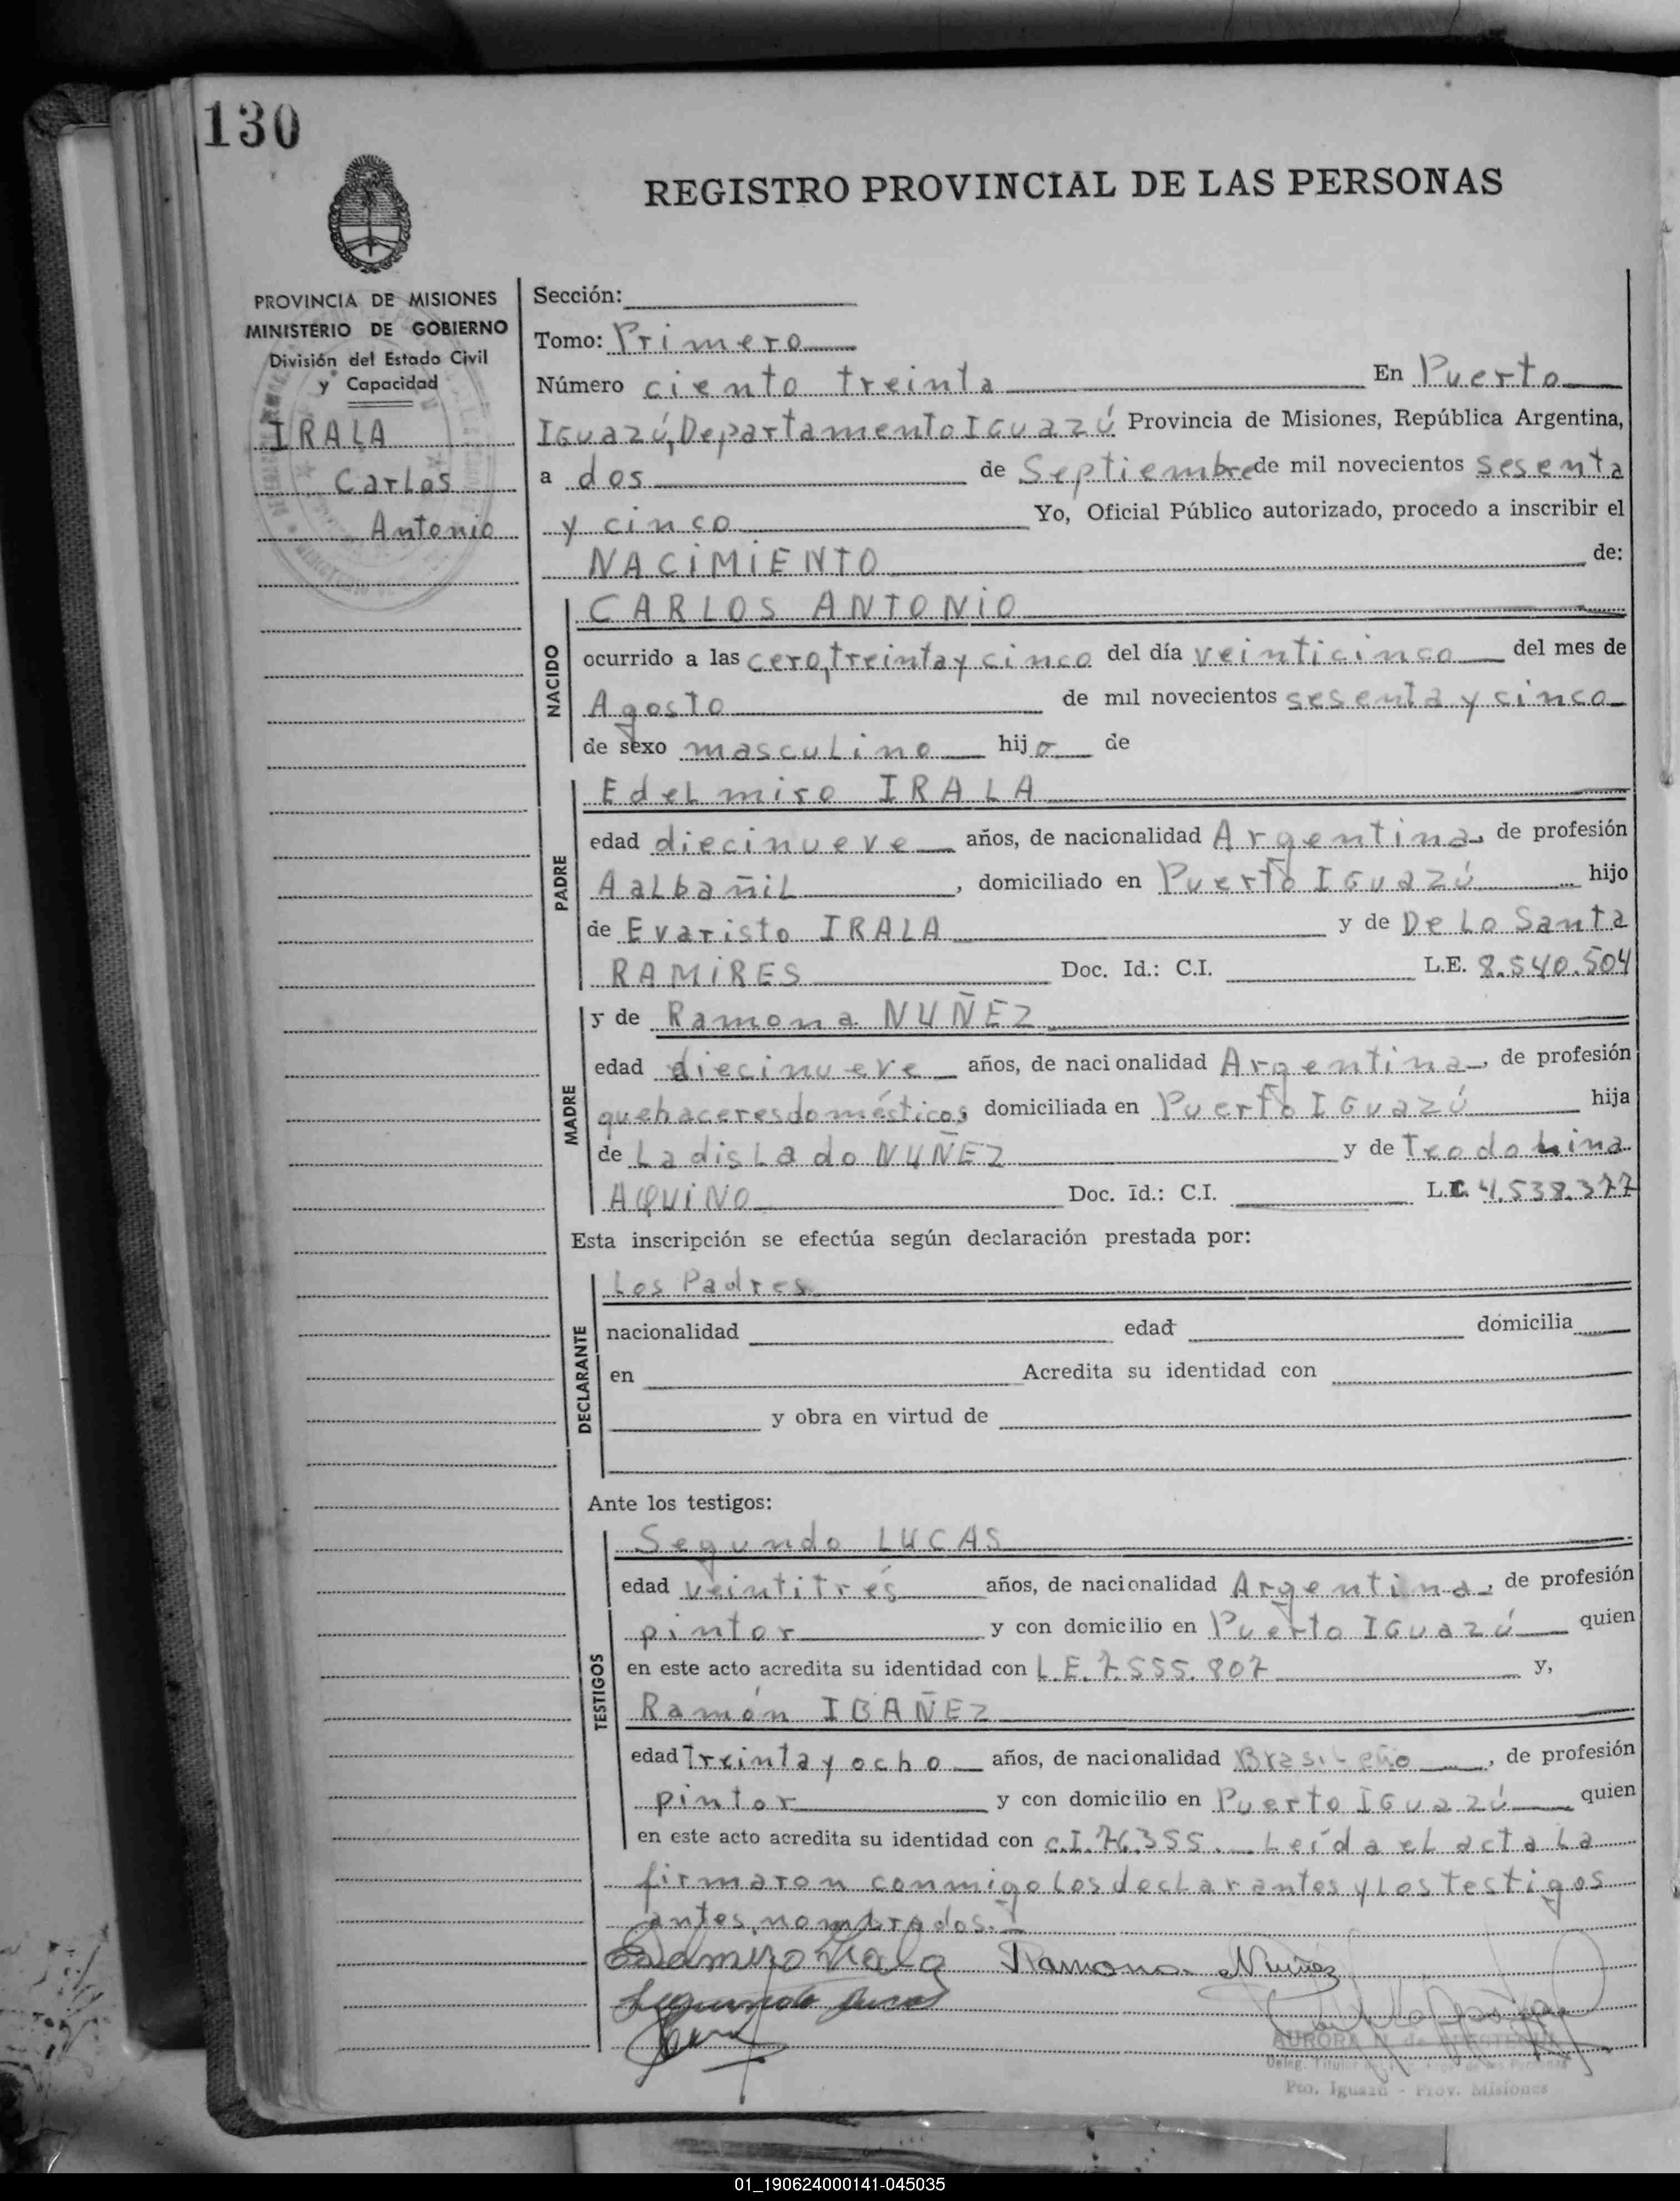 130
REGISTRO PROVINCIAL DE LAS PERSONAS
PROVINCIA DE MISIONES
MINISTERIO DE GOBIERNO
División del Estado Civil
y Capacidad
IRALA
Carlos
Antonio
Sección:
Tomo: Primero
Número ciento treinta En Puerto
IGuazú, Departamento IGuazú Provincia de Misiones, República Argentina,
a dos de Septiembre de mil novecientos sesenta
y cinco Yo, Oficial Público autorizado, procedo a inscribir el
NACIMIENTO de:
NACIDO
CARLOS ANTONIO
ocurrido a las cero, treinta y cinco del día veinticinco del mes de
Agosto de mil novecientos sesenta y cinco
de sexo masculino hijo de
PADRE
Edelmiro IRALA
edad diecinueve años, de nacionalidad Argentina, de profesión
Aalbañil, domiciliado en Puerto IGuazú hijo
de Evaristo IRALA y de De Lo Santa
RAMIRES Doc. Id.: C.I. L.E. 8.540.504
MADRE
y de Ramona NUÑEZ
edad diecinueve años, de nacionalidad Argentina, de profesión
quehaceres domésticos, domiciliada en Puerto IGuazú hija
de Ladislado NUÑEZ y de
AQUINO Doc. Id.: C.I. L.C. 4.538.377
Esta inscripción se efectúa según declaración prestada por:
DECLARANTE
Los Padres
nacionalidad edad domicilia
en Acredita su identidad con
y obra en virtud de
Ante los testigos:
TESTIGOS
Segundo LUCAS
edad veintitrés años, de nacionalidad Argentina, de profesión
pintor y con domicilio en Puerto IGuazú quien
en este acto acredita su identidad con L.E. 7.555.807 y,
Ramón IBAÑEZ
edad Treinta y ocho años, de nacionalidad Brasileño, de profesión
pintor y con domicilio en Puerto IGuazú quien
en este acto acredita su identidad con C.I. 76.355. Leída el acta la
firmaron conmigo los declarantes y los testigos
antes nombrados.
Edelmiro Irala Ramona Nuñez
Segundo Lucas
AURORA
Pto. Iguazú - Prov. Misiones
01_190624000141-045035